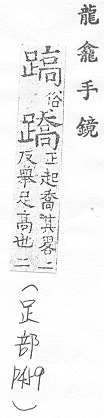 龍龕手鏡
俗蹻正起喬其畧二
反舉足高也二
(足部